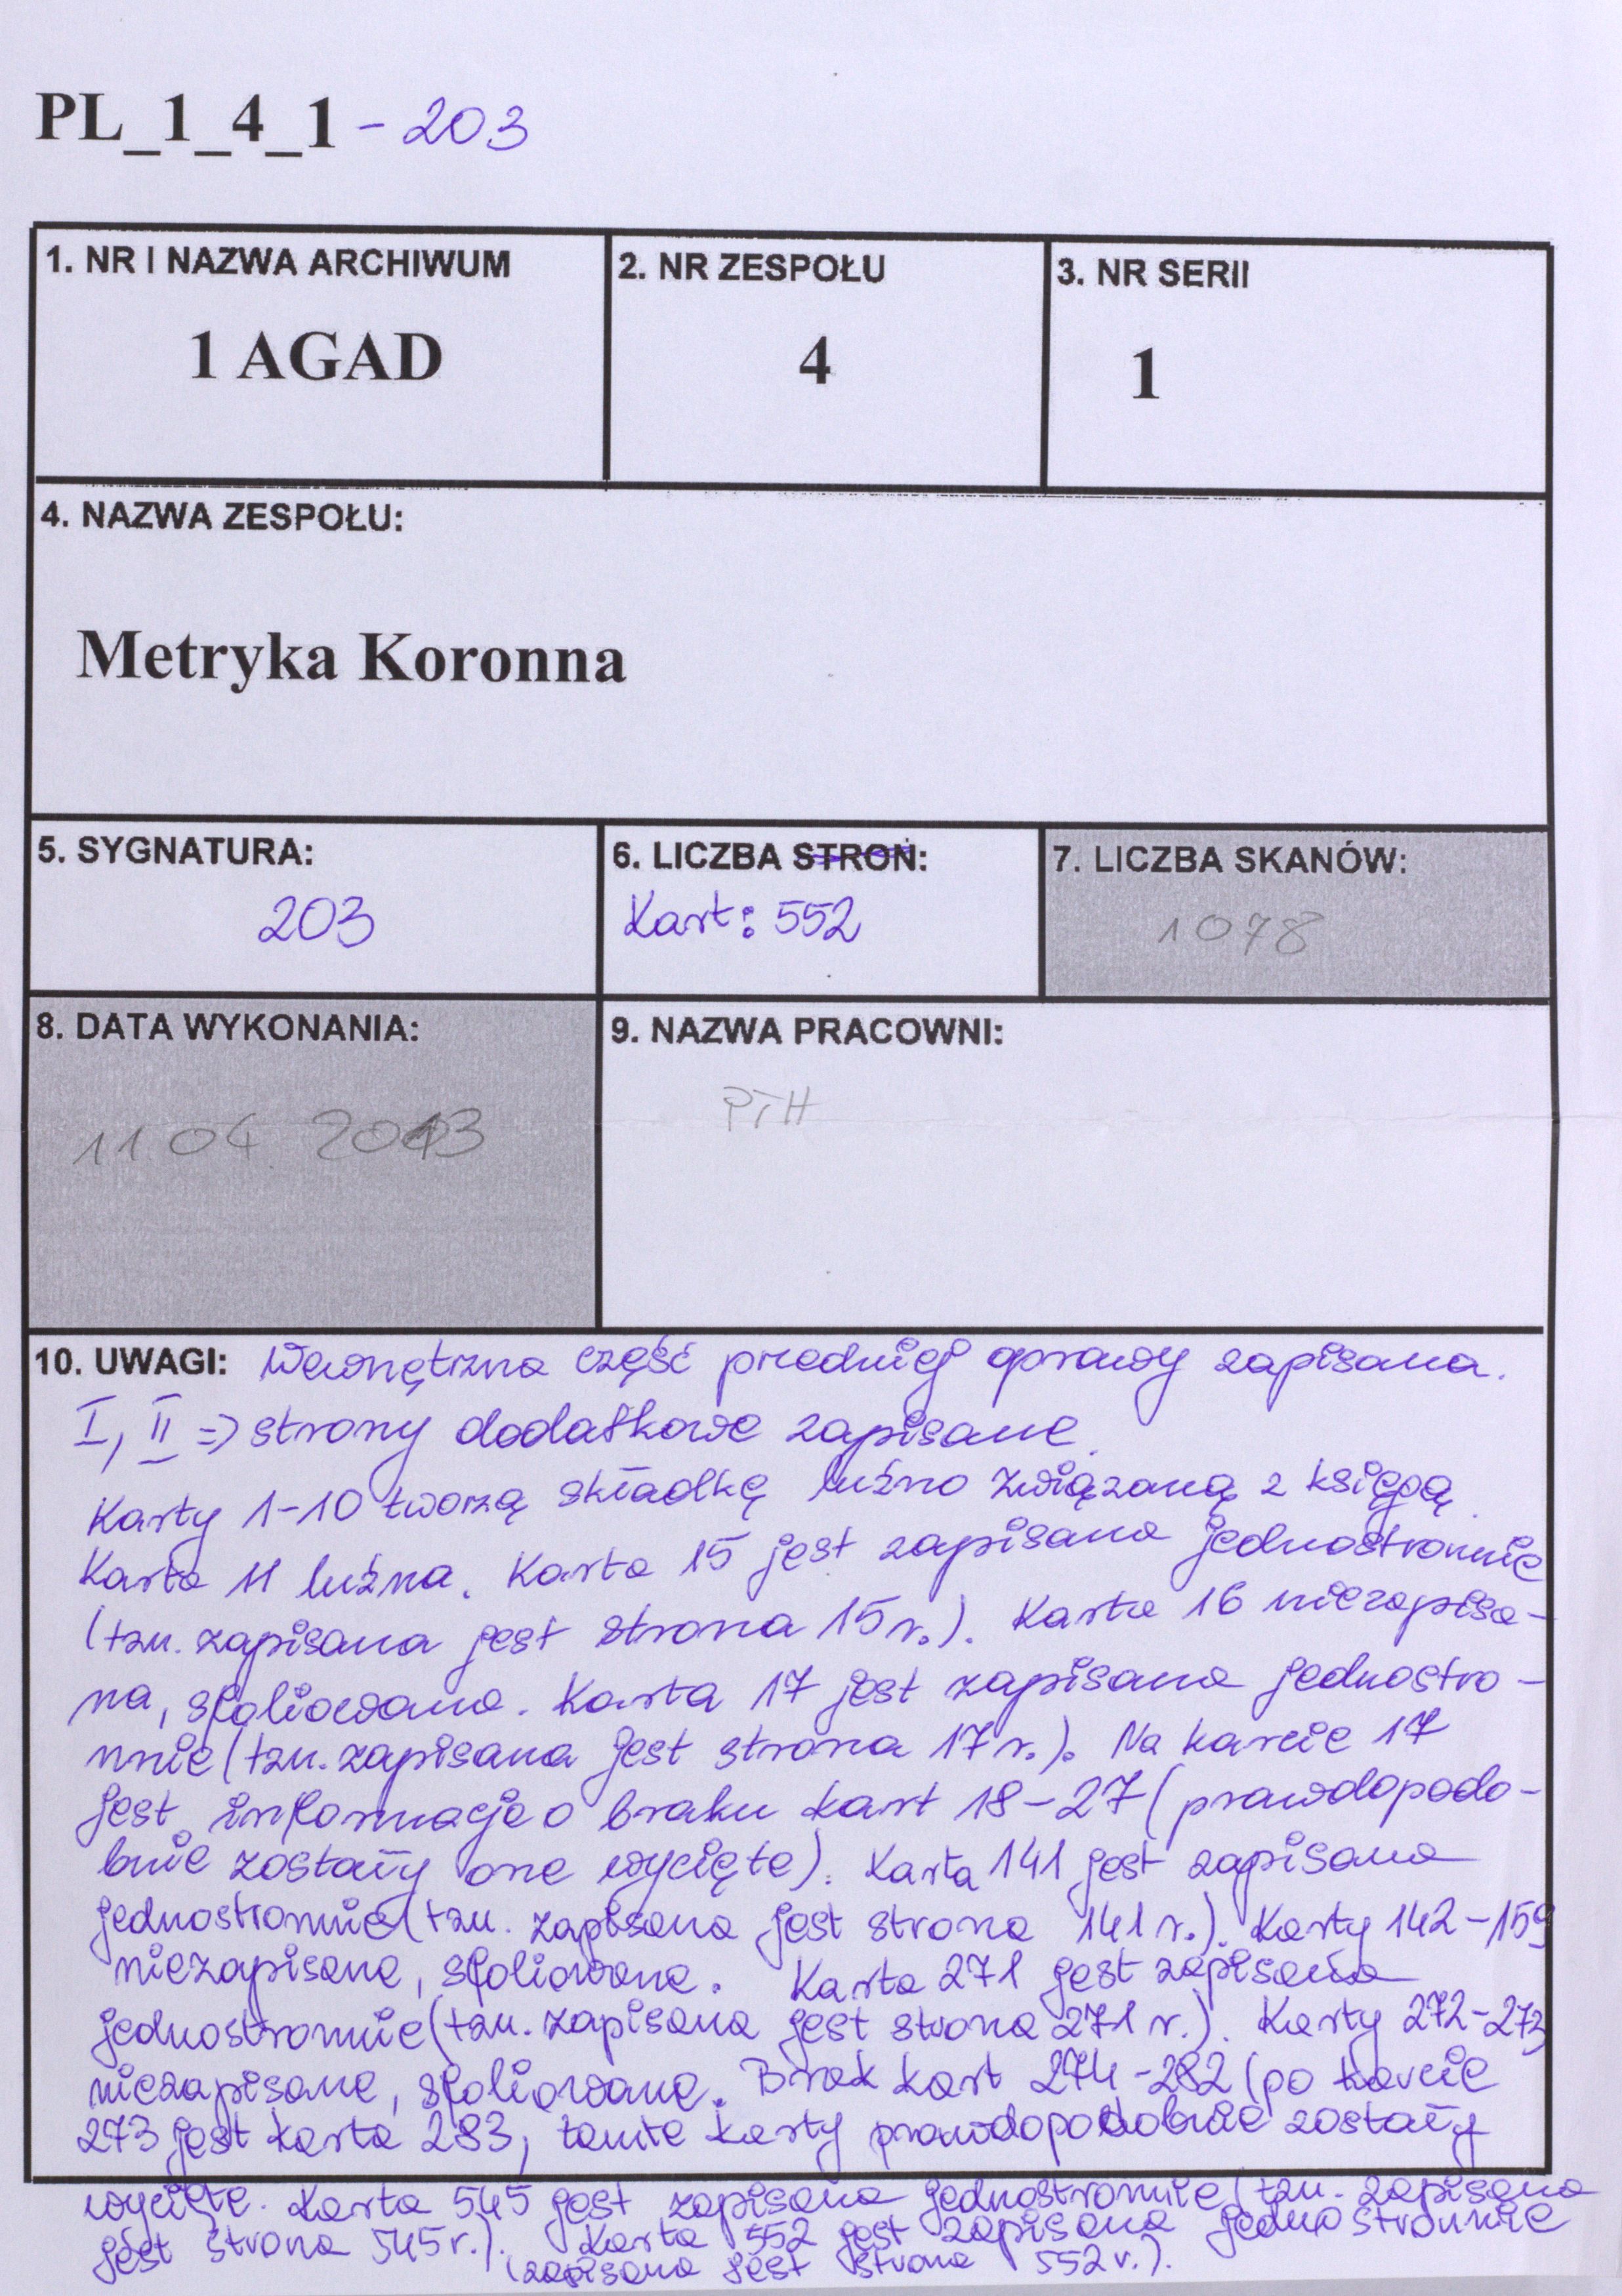 PL_1_4_1 - 203
1. NR I NAZWA ARCHIWUM
1 AGAD
2. NR ZESPOŁU
4
3. NR SERII
1
4. NAZWA ZESPOŁU:
Metryka Koronna
5. SYGNATURA:
203
6. LICZBA STRON:
Kart: 552
7. LICZBA SKANÓW:
1078
8. DATA WYKONANIA:
11 04 2013
9. NAZWA PRACOWNI:
PTH
10. UWAGI: Wewnętrzna część przedniej oprawy zapisana.
I, II => strony dodatkowe zapisane.
Karty 1-10 tworzą składkę luźno związaną z księgą.
Karta 11 luźna. Karta 15 jest zapisana jednostronnie
(tzn. zapisana jest strona 15 r.). Karta 16 niezapisa-
na, sfoliowana. Karta 17 jest zapisana jednostro-
nnie (tzn. zapisana jest strona 17 r.). Na karcie 17
jest informacja o braku kart 18-27 (prawdopodo-
bnie zostały one wycięte). Karta 141 jest zapisana
jednostronnie (tzn. zapisana jest strona 141 r.). Karty 142-159
niezapisane, sfoliowane. Karta 271 jest zapisana
jednostronnie (tzn. zapisana jest strona 271 r.). Karty 272-273
niezapisane, sfoliowane. Brak kart 274-282 (po karcie
273 jest karta 283, tamte karty prawdopodobnie zostały
wycięte. Karta 545 jest zapisana jednostronnie (tzn. zapisana
jest strona 545 r.). Karta 552 jest zapisana jednostronnie
(zapisana jest strona 552 v.).